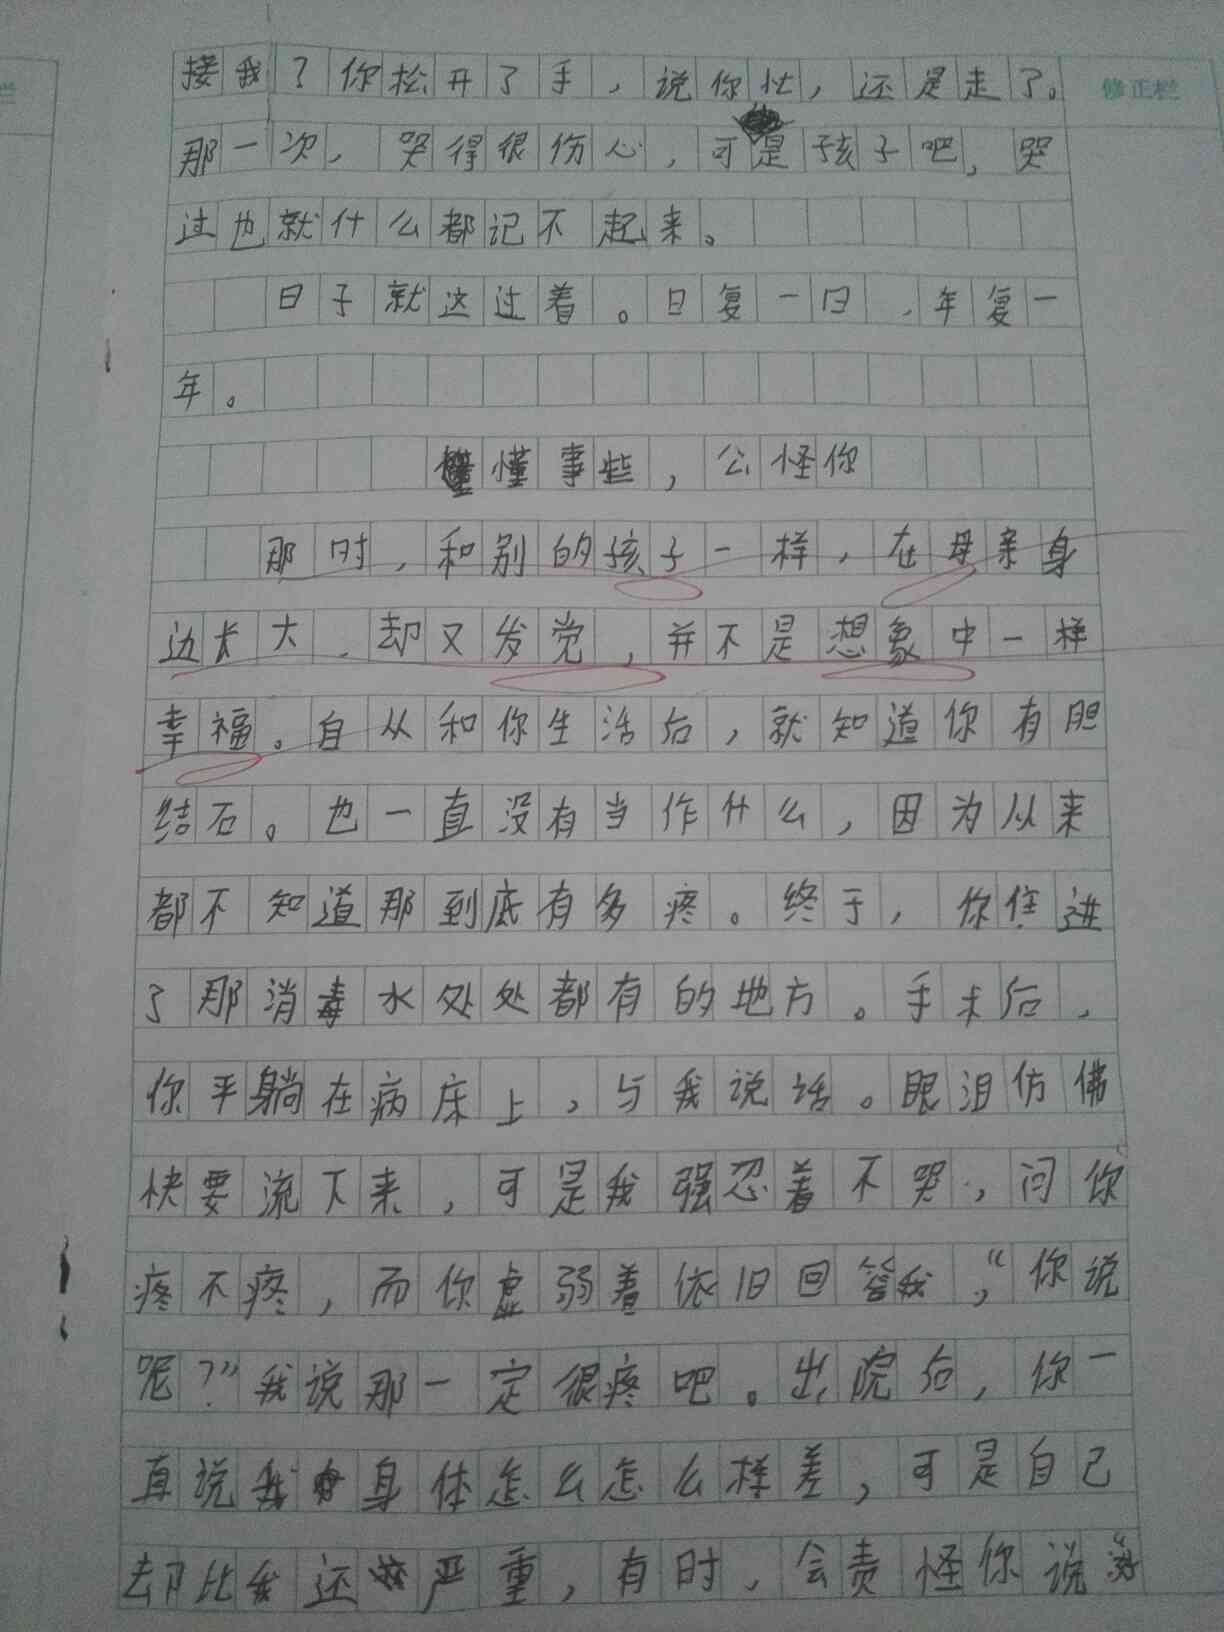 接我？你松开了手，说你忙，还是走了。
修正栏
那一次，哭得很伤心，可是孩子吧，哭
过也就什么都记不起来。
日子就这过着。日复一日，年复一
年。
懂事些，公怪你
那时，和别的孩子一样，在母亲身
边长大，却又发觉，并不是想象中一样
幸福。自从和你生活后，就知道你有胆
结石。也一直没有当作什么，因为从来
都不知道那到底有多疼。终于，你住进
了那消毒水处处都有的地方。手术后，
你平躺在病床上，与我说话。眼泪仿佛
快要流下来，可是我强忍着不哭，问你
疼不疼，而你虚弱着依旧回答我，“你说
呢？”我说那一定很疼吧。出院后，你一
直说我身体怎么怎么样差，可是自己
却比我还严重，有时，会责怪你说